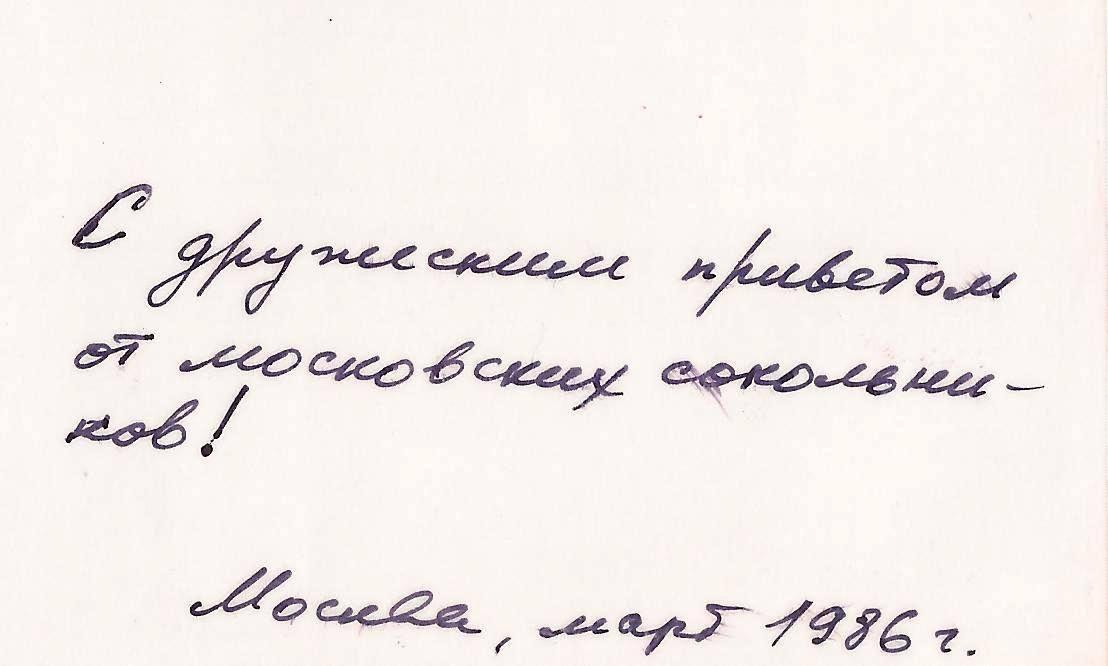 С дружеским приветом
от московских сокольни-
ков!
Москва, март 1986 г.